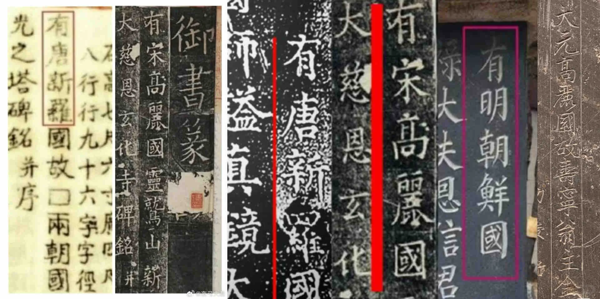 石高七尺六寸廣
八行行九十六字字徑
有唐新羅國故□兩朝國
光之塔碑銘并序
御書篆
有宋高麗國靈鷲山新
大慈恩玄化寺碑銘并
有唐新羅國
師謚真鏡大
有宋高麗國
大慈恩玄化
有明朝鮮國
祿大夫恩言君
大元高麗國故壽寧翁主金